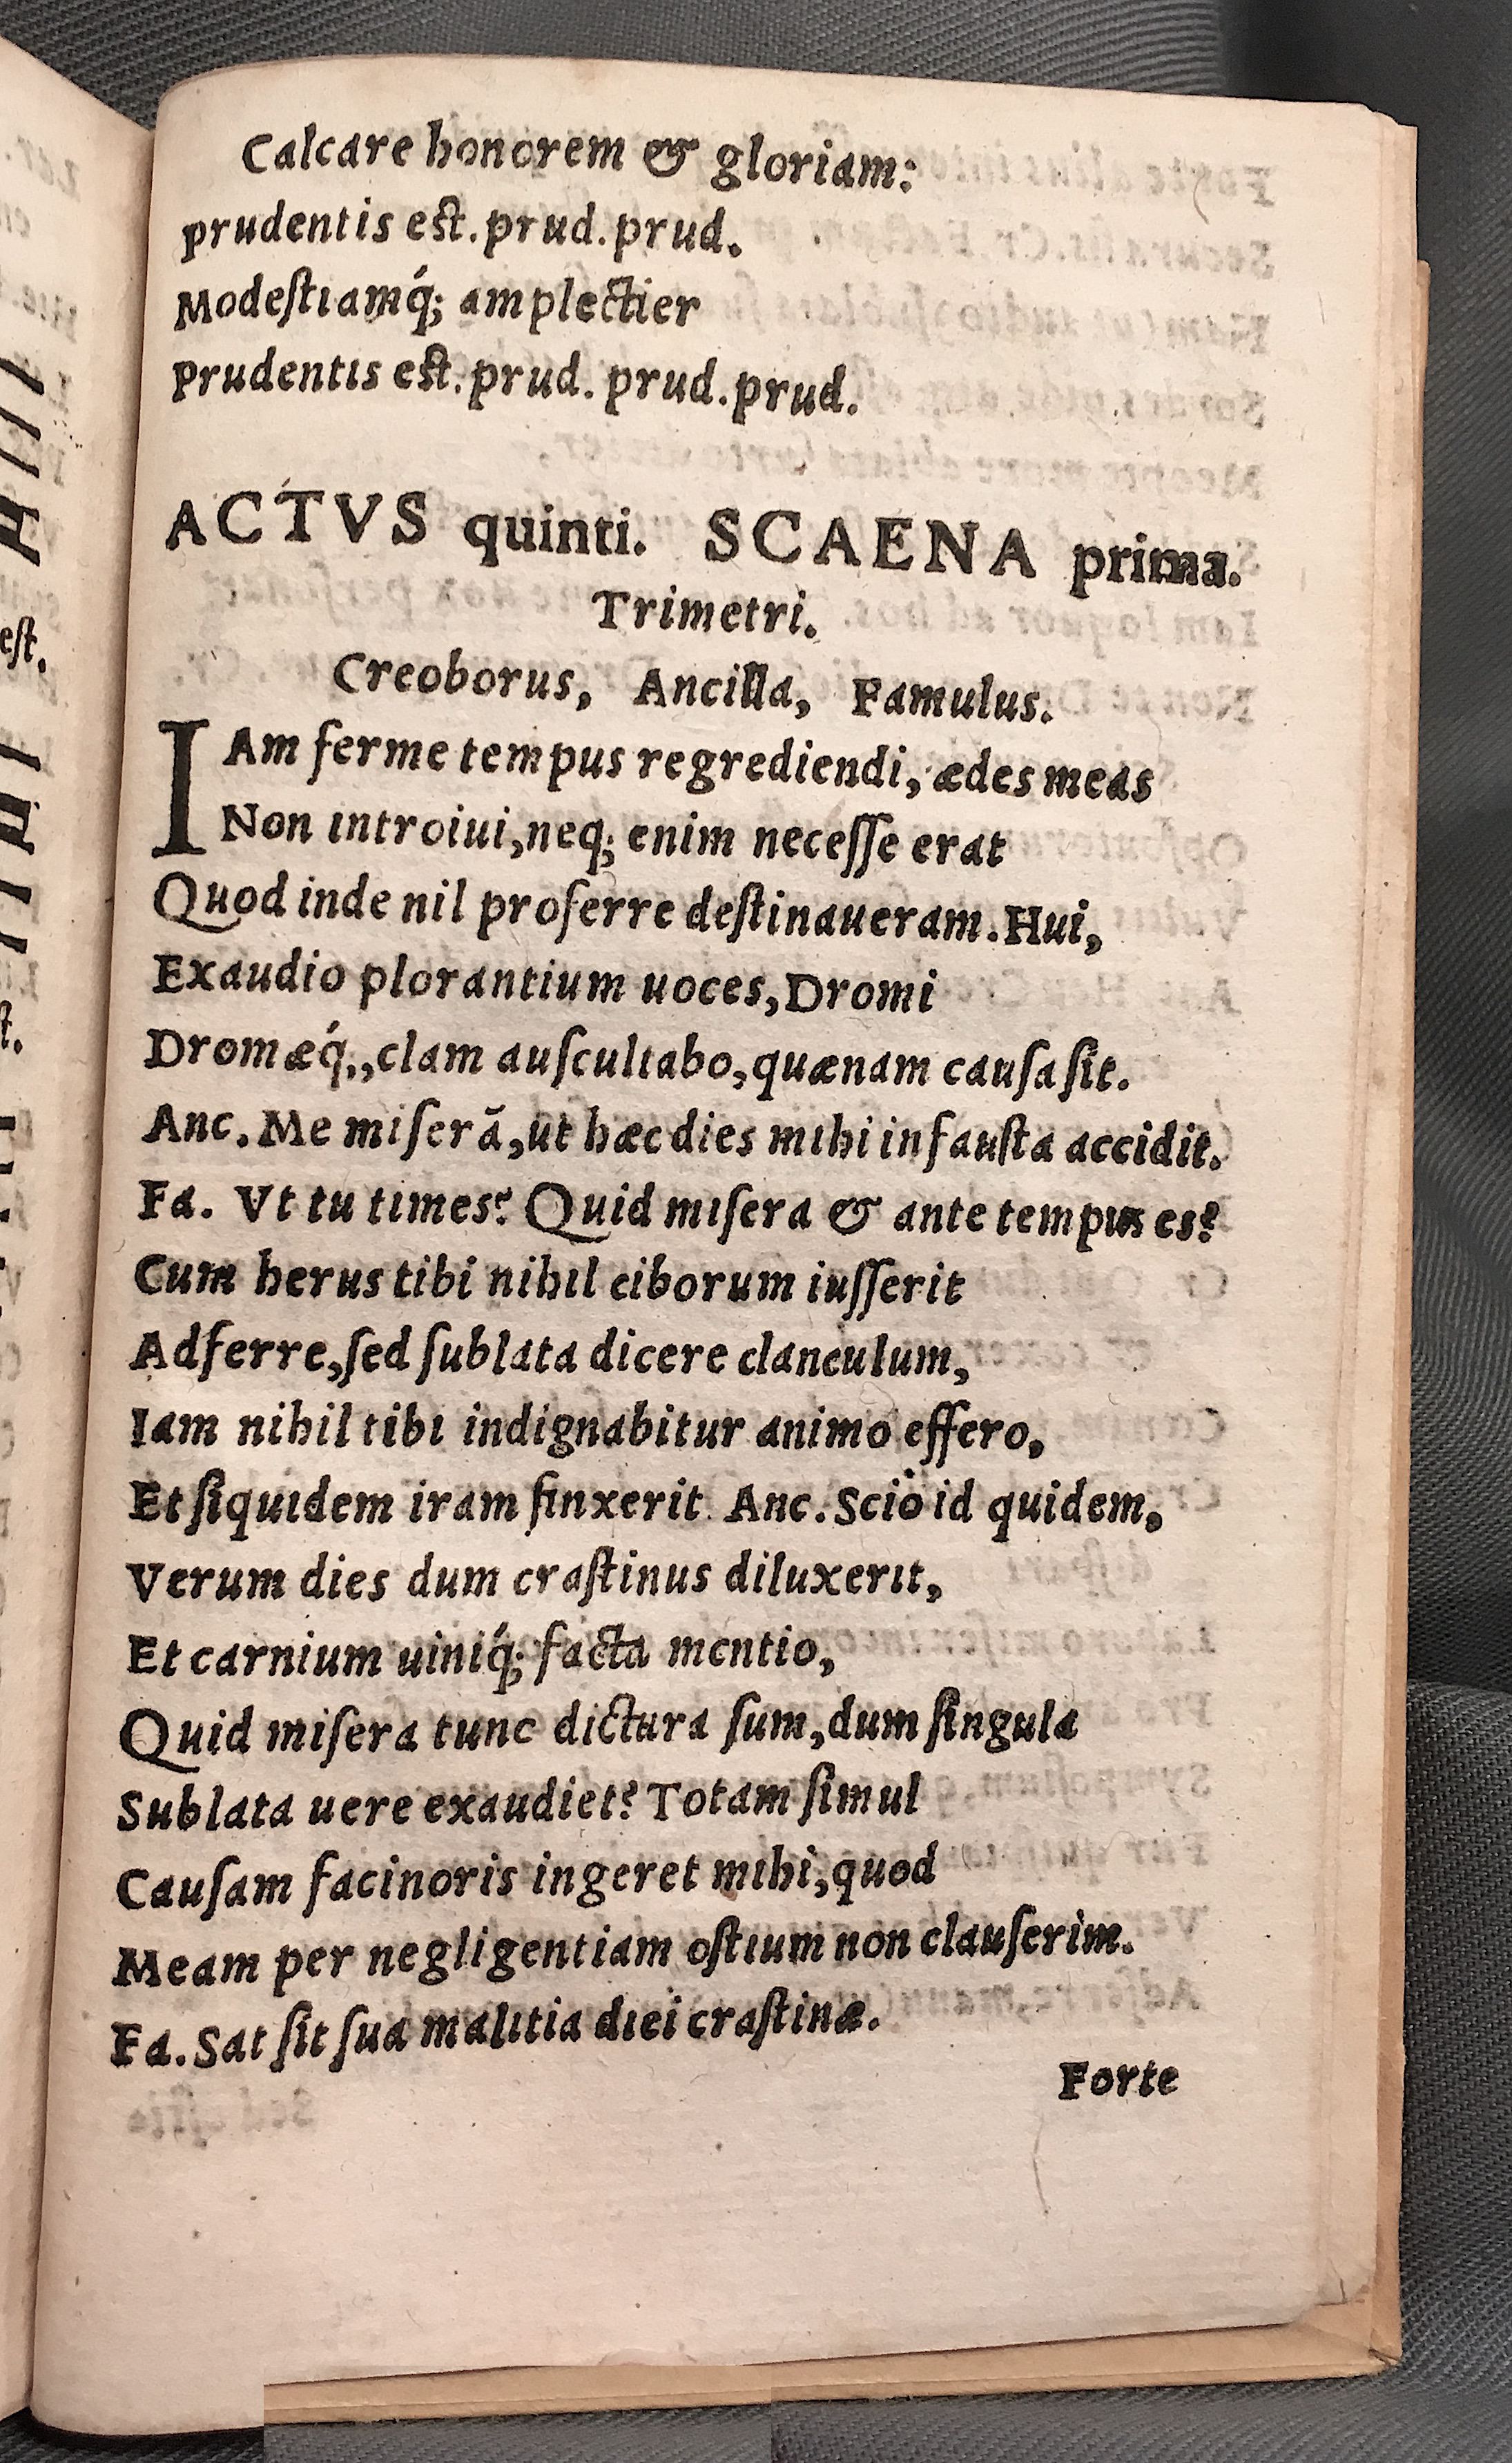 Calcare honorem & gloriam:
prudentis est. prud. prud.
Modeſtiamq́; amplectier
prudentis est. prud. prud. prud.
ACTVS quinti. SCAENA prima.
Trimetri.
Creoborus, Ancilla, Famulus.
IAm ferme tempus regrediendi, ædes meas
Non introiui, neq; enim neceſſe erat
Quod inde nil proferre deſtinaueram. Hui,
Exaudio plorantium uoces, Dromi
Dromæq́;, clam auſcultabo, quænam cauſa ſit.
Anc. Me miſerã, ut hæc dies mihi infauſta accidit.
Fa. Vt tu times? Quid miſera & ante tempus es?
Cum herus tibi nihil ciborum iuſſerit
Adferre, ſed ſublata dicere clanculum,
Iam nihil tibi indignabitur animo effero,
Et ſiquidem iram finxerit. Anc. Scio id quidem,
Verum dies dum craſtinus diluxerit,
Et carnium uiniq́; facta mentio,
Quid miſera tunc dictura ſum, dum ſingula
Sublata uere exaudiet? Totam ſimul
Cauſam facinoris ingeret mihi, quod
Meam per negligentiam oſtium non clauſerim.
Fa. Sat ſit ſua malitia diei craſtinæ.
Forte